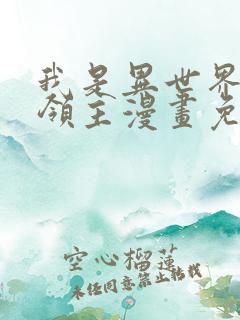 我是異世界
領主漫畫免
空心榴蓮
未经同意禁止转载